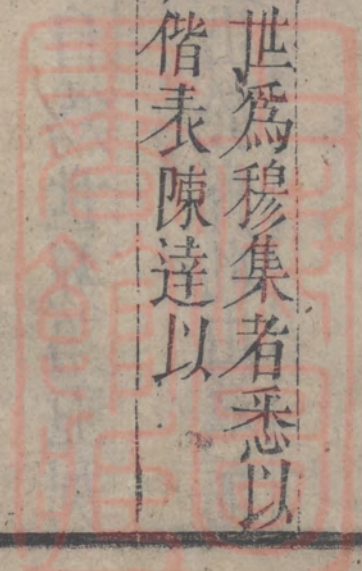 世爲穆集者悉以
偕表陳達以